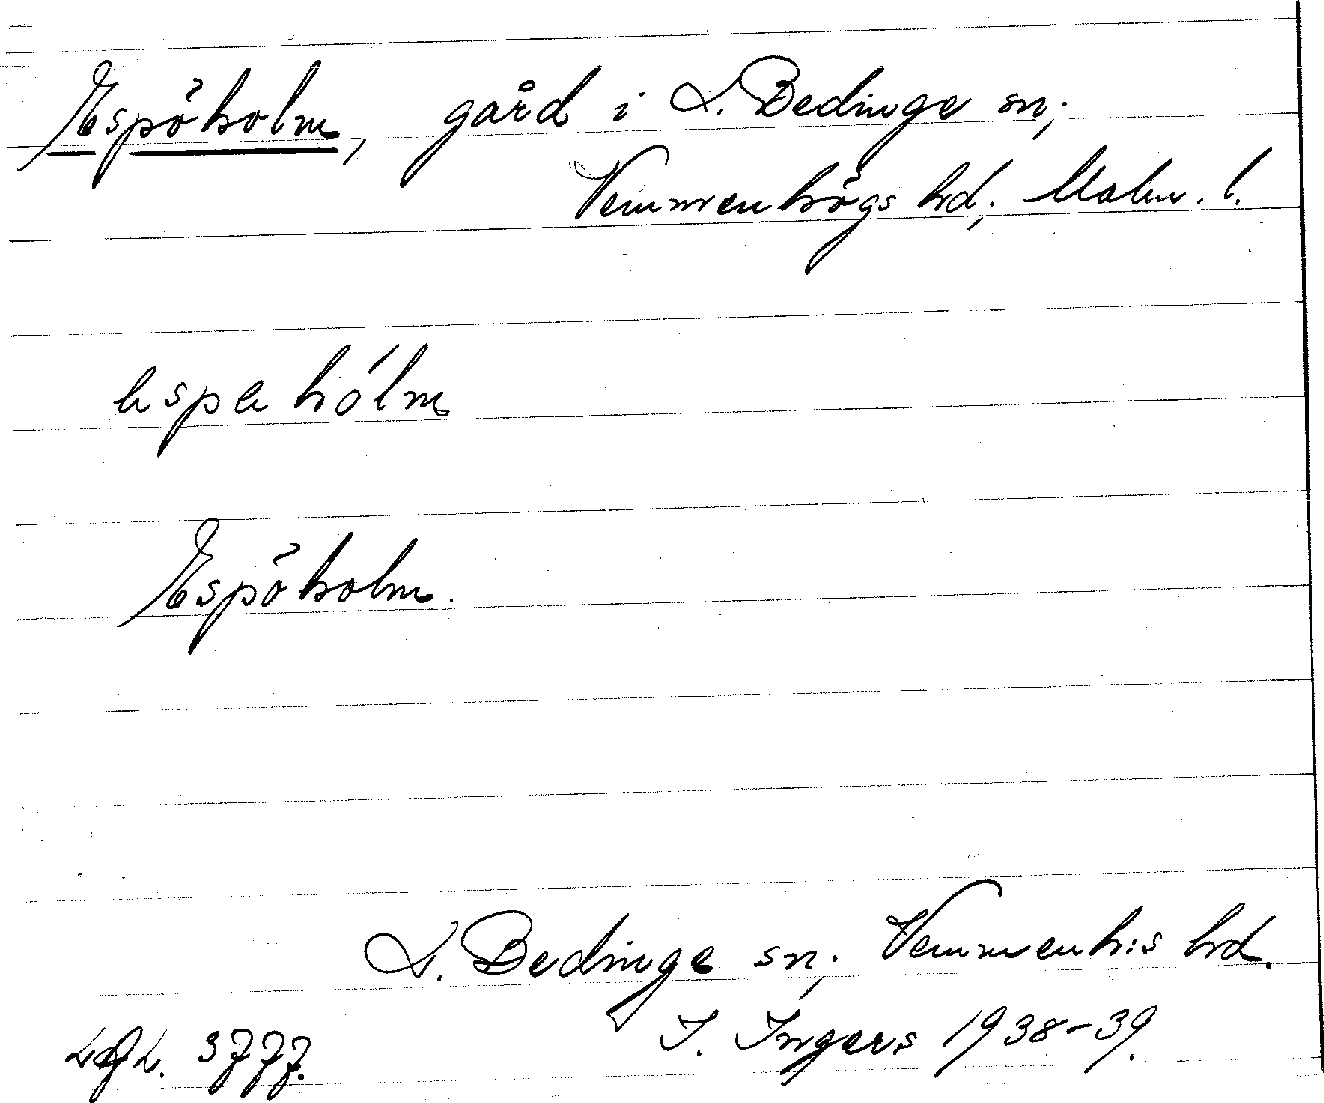 Espöholm, gård i L. Bedinge sn;
Vemmenhögs hd; Malm. l.
espahólm
Espöholm.
L. Bedinge sn; Vemmenh:s hd.
I. Ingers 1938-39.
3777.